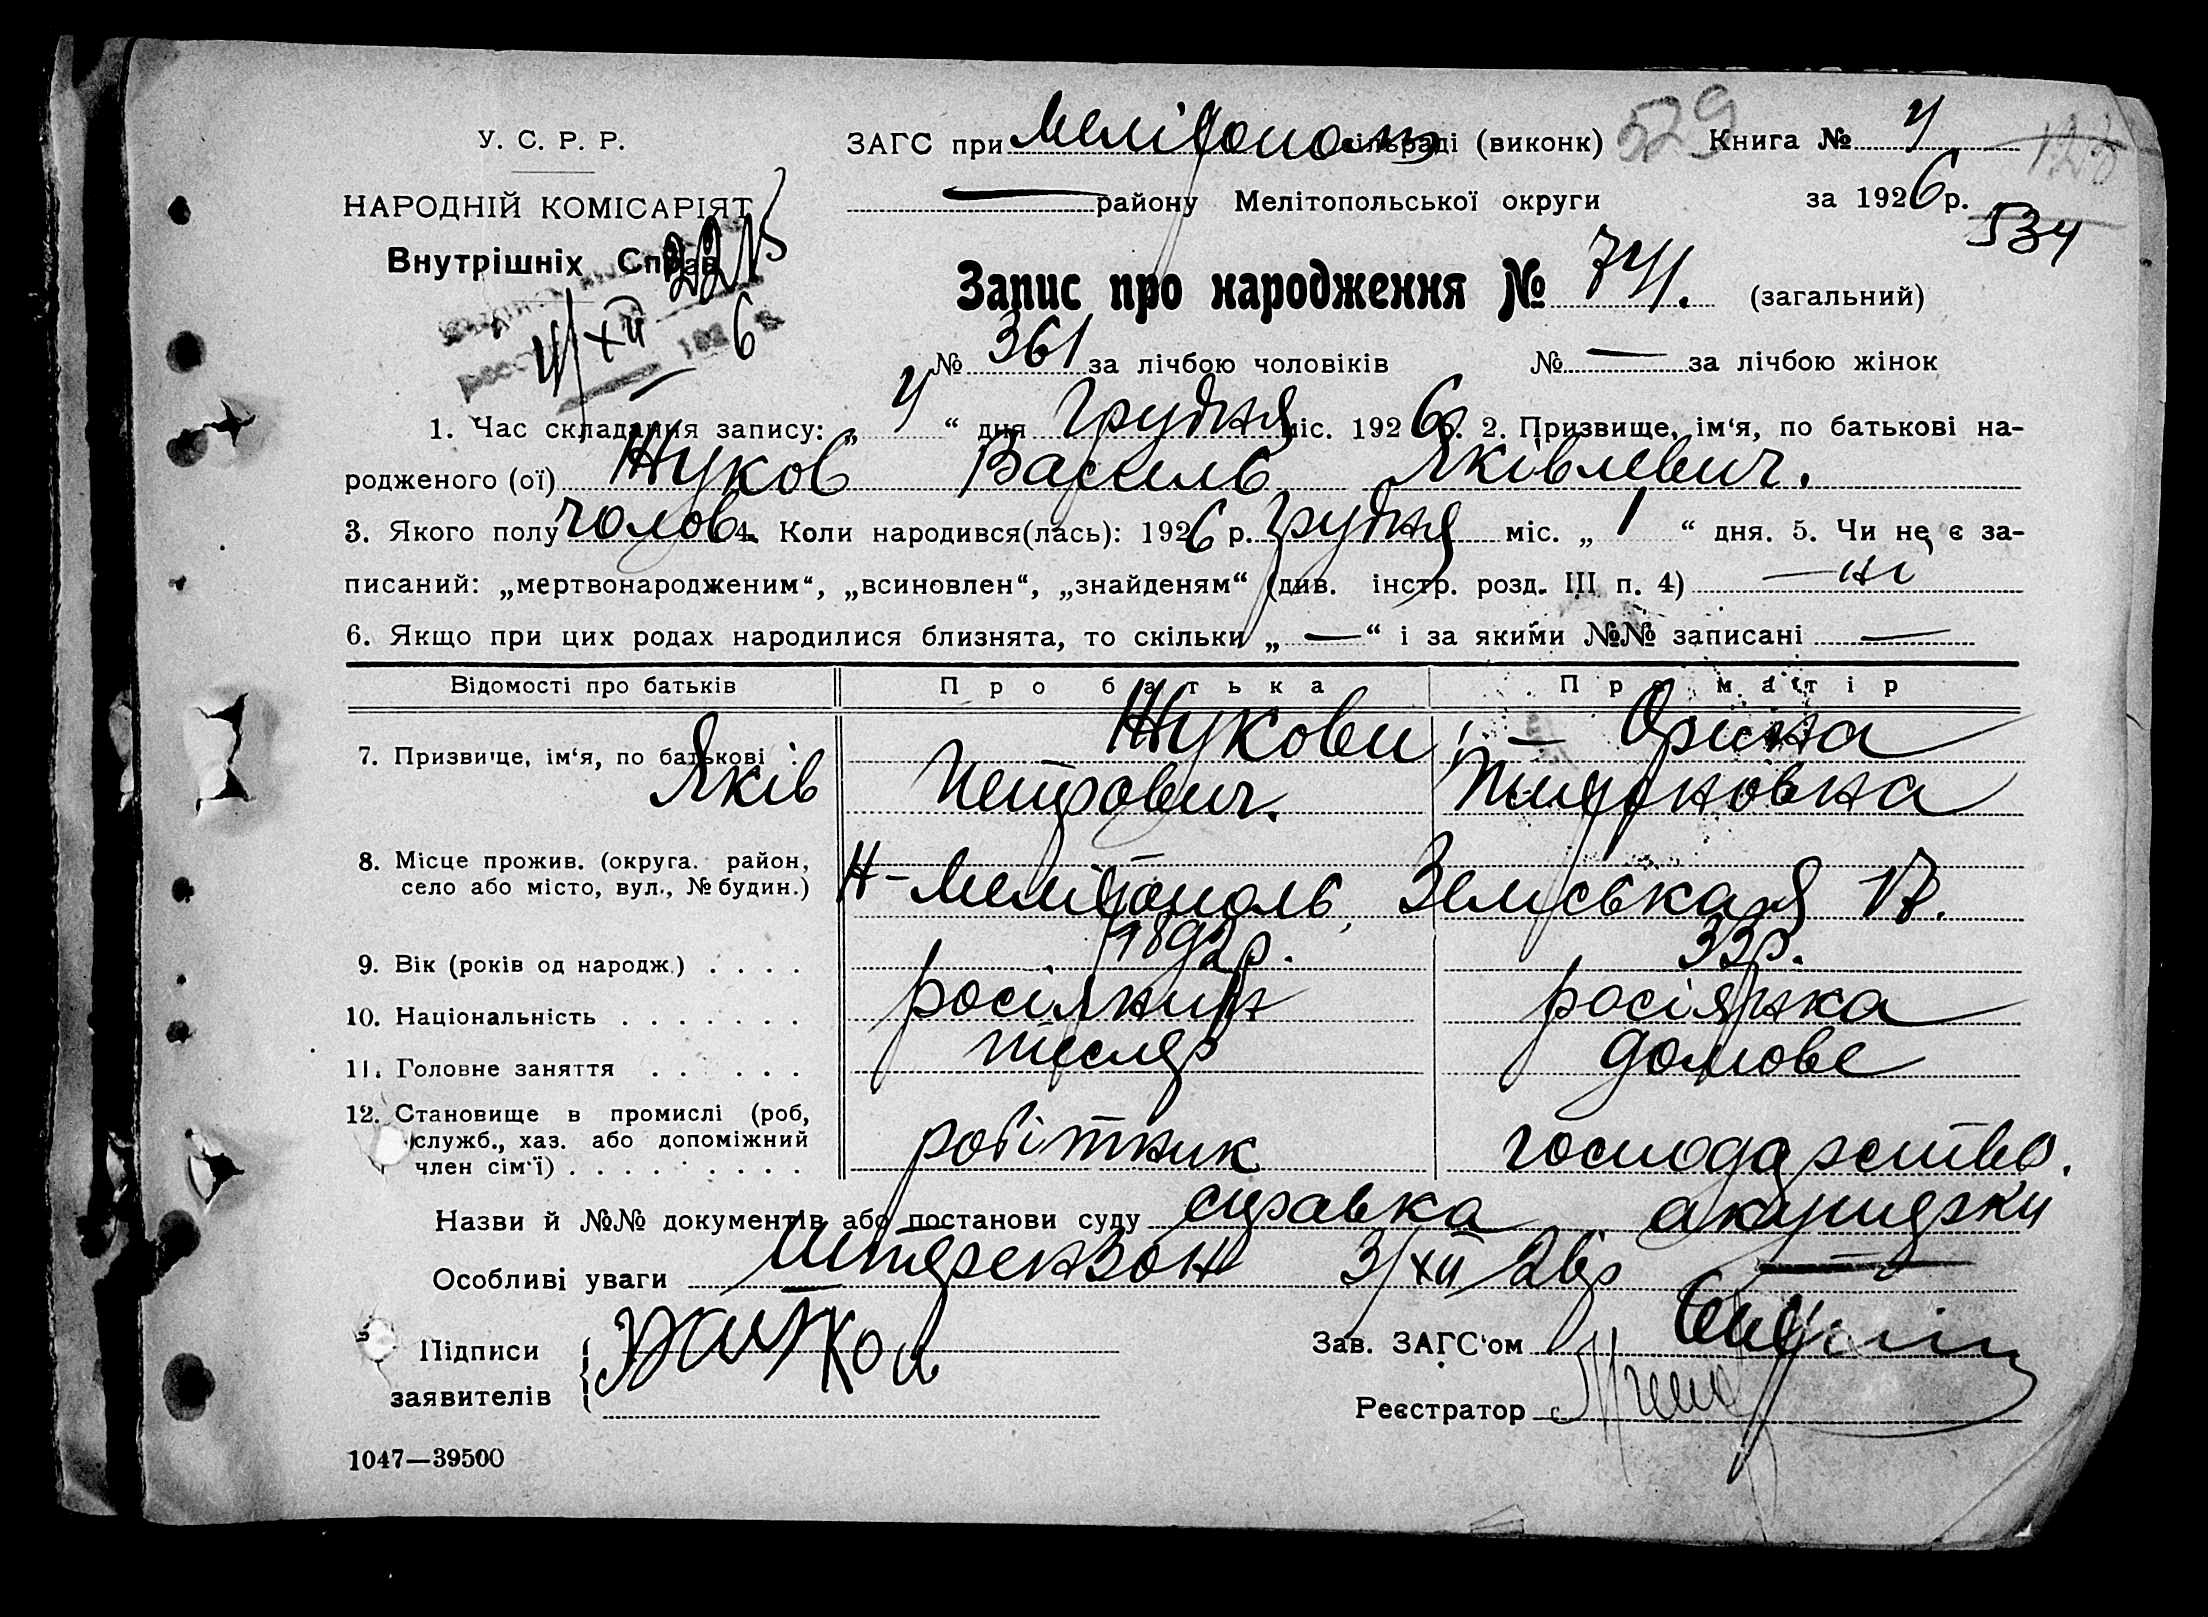 У. С. Р. Р.
ЗАГС при Мелітополь сільраді (виконк) 529 Книга № 4
НАРОДНІЙ КОМІСАРІЯТ
району Мелітопольської округи за 1926 р.
534
Внутрішніх Справ
Запис про народження № 741. (загальний)
4/XII 6
№ 361 за лічбою чоловіків № — за лічбою жінок
1. Час складання запису: „ 4 “ дня Грудня міс. 1926 р. 2. Призвище, ім‘я, по батькові на-
родженого (ої) Жуков Василь Яківлевич.
3. Якого полу чолов. 4. Коли народився(лась): 1926 р. Грудня міс. „ 1 “ дня. 5. Чи не є за-
писаний: „мертвонародженим“, „всиновлен“, „знайденям“ (див. інстр. розд. III п. 4) — ні
6. Якщо при цих родах народилися близнята, то скільки „ — “ і за якими №№ записані —
Відомості про батьків Про батька Про матір
7. Призвище, ім‘я, по батькові : Жукови, — Орина
Яків Петрович.
8. Місце прожив. (округа. район,
село або місто, вул., № будин.) Н-Мелітополь, Земська 17.
9. Вік (років од народж.) . . . . 1892 р. 33 р.
10. Національність . . . . . . . росіянин росіянка
11. Головне заняття . . . . . . тесляр домове
12. Становище в промислі (роб,
служб., хаз. або допоміжний
член сім‘ї) . . . . . . . . . робітник господарство.
Назви й №№ документів або постанови суду справка акушерки
Особливі уваги Штерензон 3/XII 26 р
Підписи
заявителів
Зав. ЗАГС‘ом
Реєстратор
1047—39500